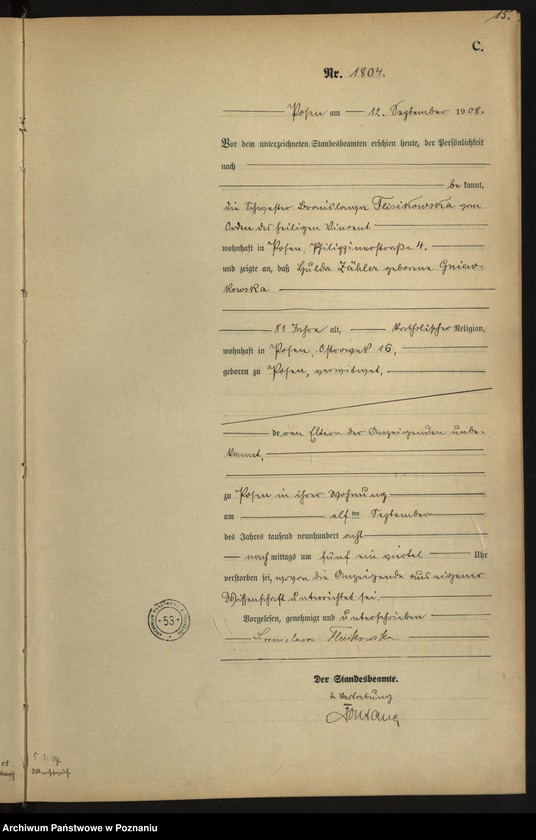 15.
C.
Nr. 1804.
Posen am 12. September 1908.
Vor dem unterzeichneten Standesbeamten erschien heute, der Persönlichkeit
nach
bekannt,
die Schwester Bronislawa Flisikowska vom
Orden des heiligen Vincent
wohnhaft in Posen, Philippinerstraße 4.
und zeigte an, daß Hulda Zähler geborene Gniew-
kowska
81 Jahre alt, katholischer Religion,
wohnhaft in Posen, Ostrowek 16,
geboren zu Posen, verwitwet,
deren Eltern der Anzeigenden unbe-
kannt,
zu Posen in ihrer Wohnung
am elften September
des Jahres tausend neunhundert acht
nachmittags um fünf ein viertel Uhr
verstorben sei, wovon die Anzeigende aus eigener
Wissenschaft unterrichtet sei.
Vorgelesen, genehmigt und unterschrieben
Bronislawa Flisikowska
Der Standesbeamte.
In Vertretung
Fontane
53
Archiwum Państwowe w Poznaniu